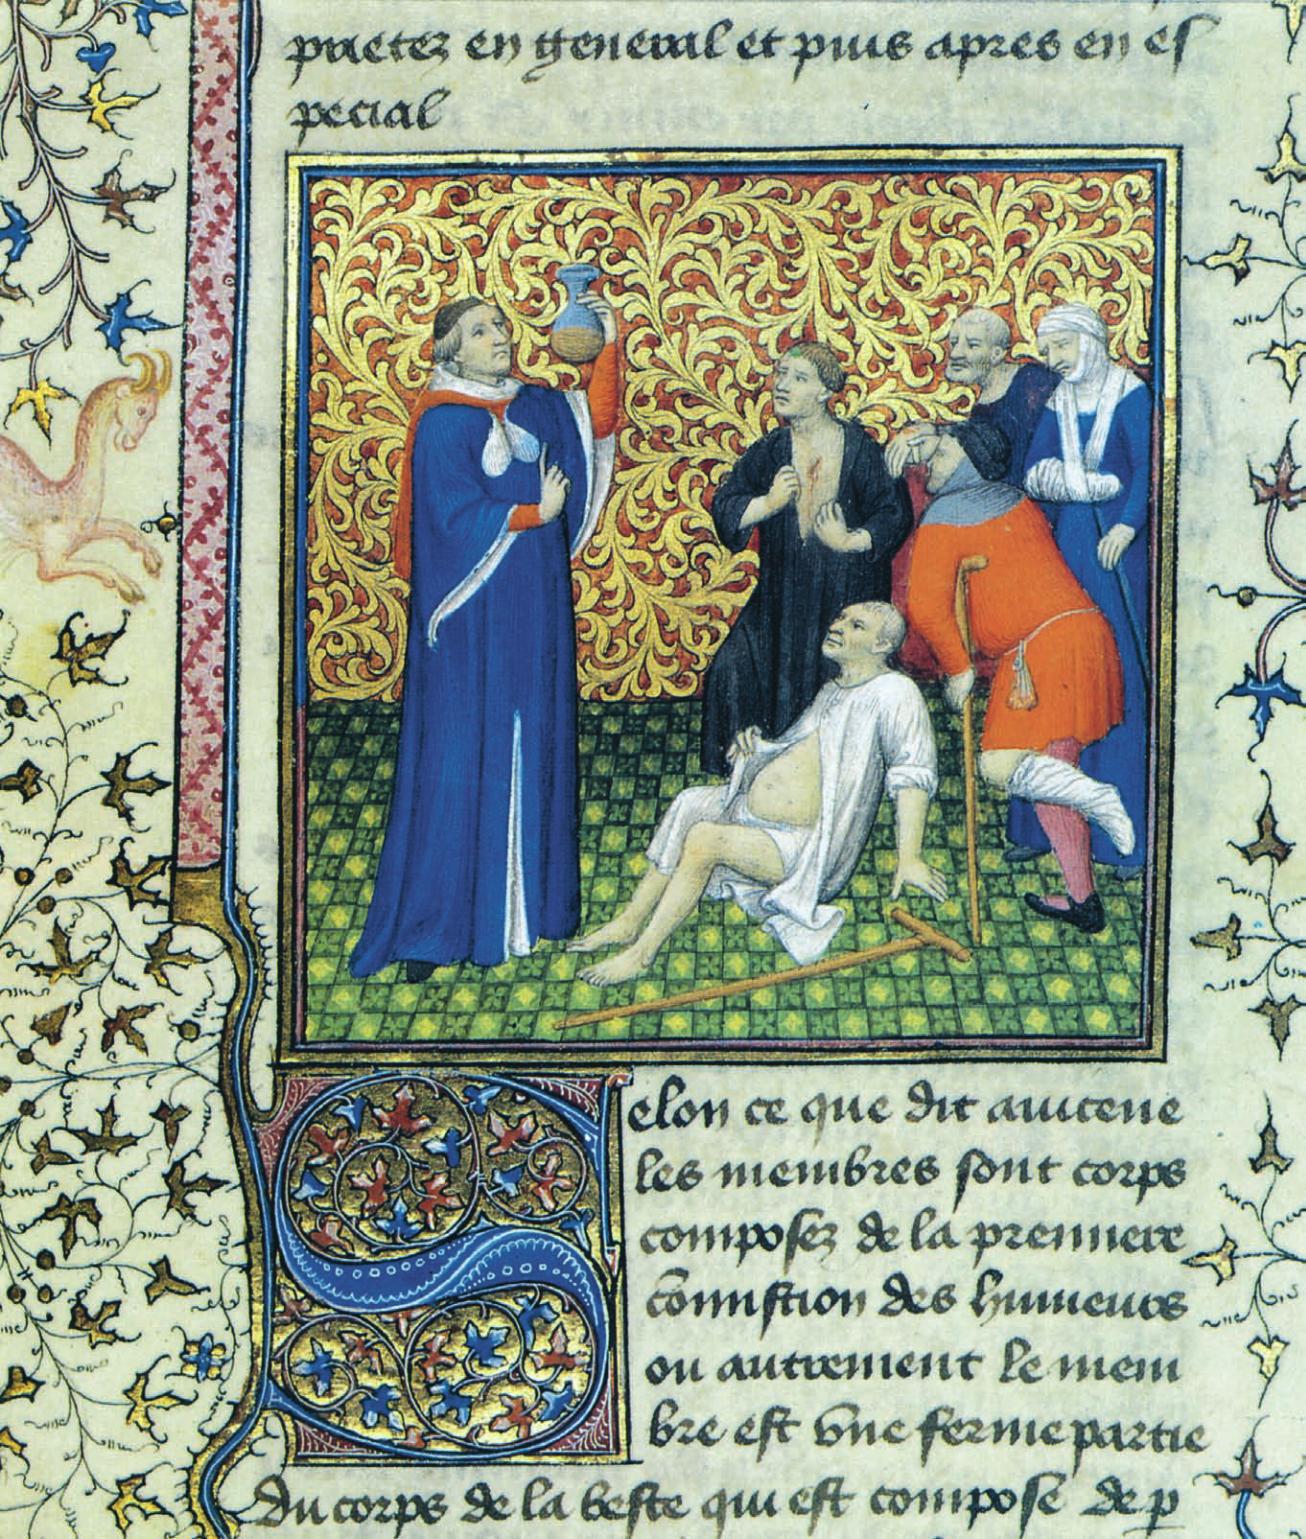 prietez en general et puis apres en es
pecial
Selon ce que dit auicene
les membres sont corps
composez de la premiere
commistion des humeurs
ou autrement le mem
bre est vne ferme partie
du corps de la beste qui est compose de p